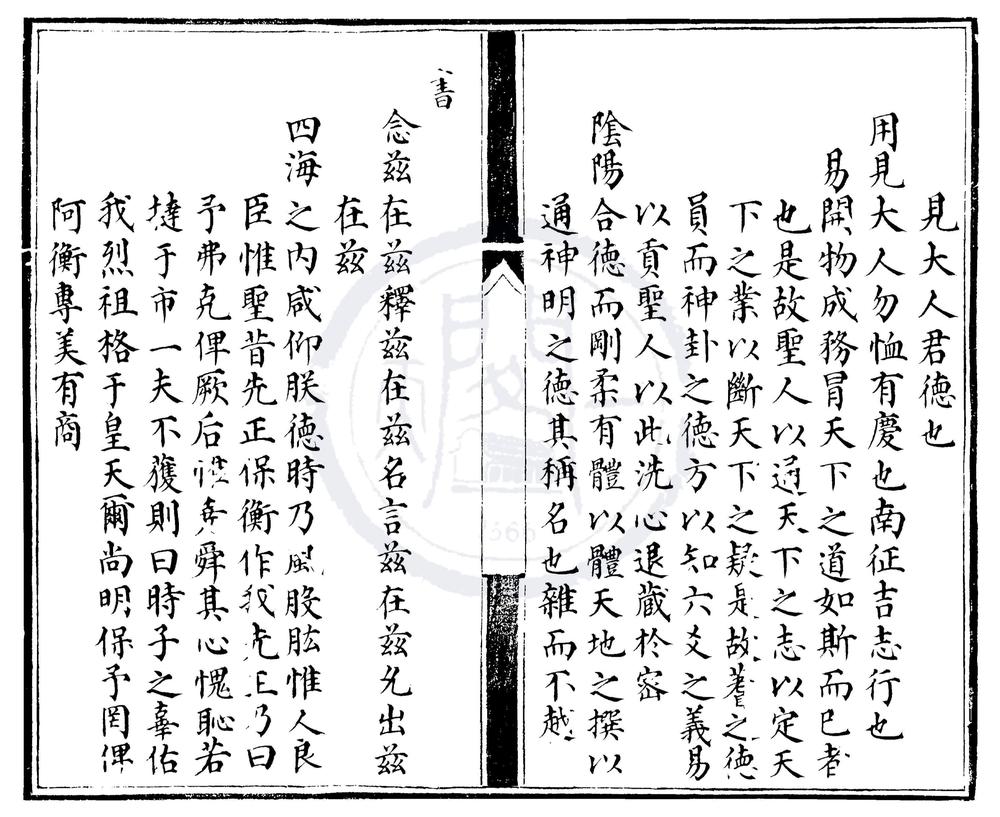 見大人君德也
用見大人勿恤有慶也南征吉志行也
易開物成務冒天下之道如斯而已者
也是故聖人以通天下之志以定天
下之業以斷天下之疑是故蓍之德
員而神卦之德方以知六爻之義易
以貢聖人以此洗心退藏於密
陰陽合德而剛柔有體以體天地之撰以
通神明之德其稱名也雜而不越
書
念茲在茲釋茲在茲名言茲在茲允出茲
在茲
四海之内咸仰朕德時乃風股肱惟人良
臣惟聖昔先正保衡作我先王乃曰
予弗克俾厥后惟堯舜其心愧恥若
撻于市一夫不獲則曰時予之辜佑
我烈祖格于皇天爾尚明保予罔俾
阿衡專美有商
1366